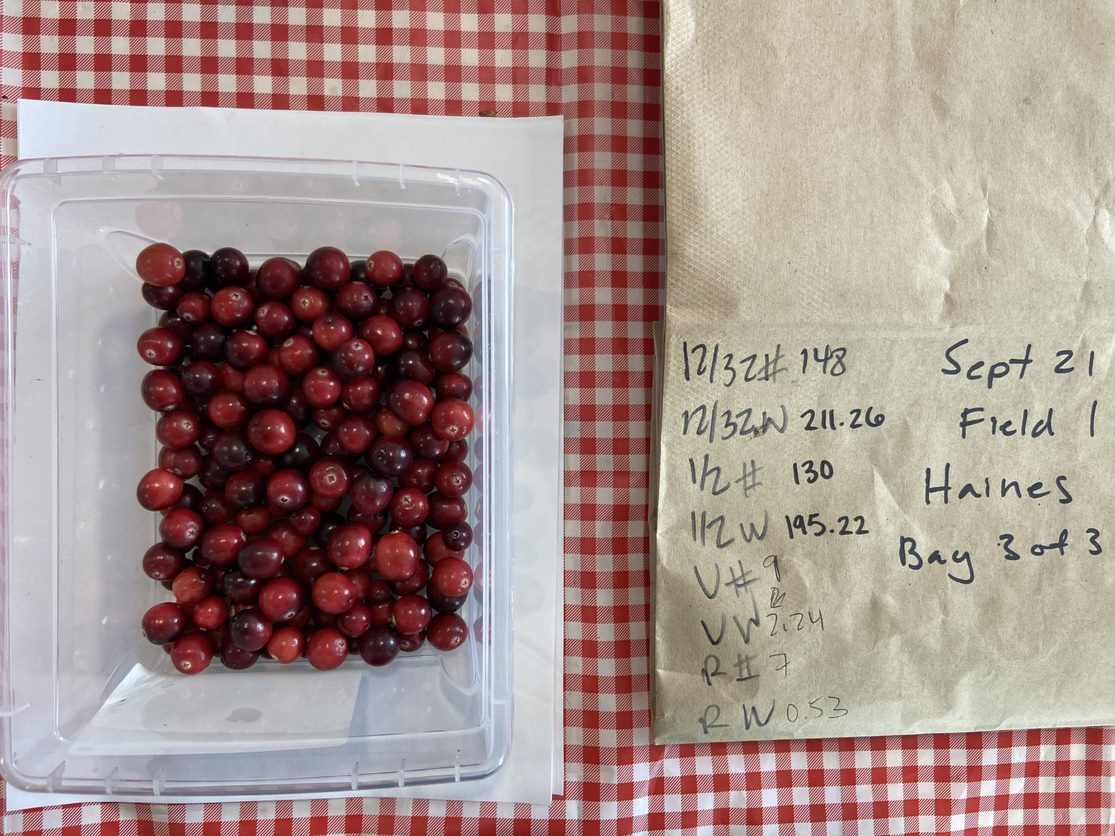 12/32# 148
12/32W 211.26
1/2 # 130
1/2 W 195.22
U# 9
UW 2.24
R# 7
RW 0.53
Sept 21
Field 1
Haines
Bay 3 of 3